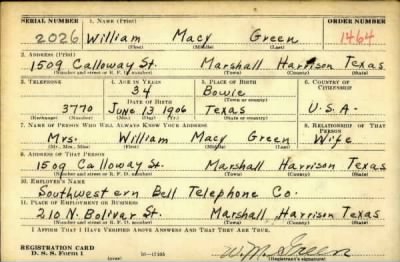 SERIAL NUMBER 1. NAME (Print) ORDER NUMBER
2026 William Macy Green 1464
(First) (Middle) (Last)
2. ADDRESS (Print)
1509 Calloway St. Marshall Harrison Texas
(Number and street or R. F. D. number) (Town) (County) (State)
3. TELEPHONE 4. AGE IN YEARS 5. PLACE OF BIRTH 6. COUNTRY OF CITIZENSHIP
34 Bowie
DATE OF BIRTH (Town or county)
3770 June 13 1906 Texas U.S.A.
(Exchange) (Number) (Mo.) (Day) (Yr.) (State or country)
7. NAME OF PERSON WHO WILL ALWAYS KNOW YOUR ADDRESS 8. RELATIONSHIP OF THAT PERSON
Mrs. William Macy Green Wife
(Mr., Mrs., Miss) (First) (Middle) (Last)
9. ADDRESS OF THAT PERSON
1509 Calloway St. Marshall Harrison Texas
(Number and street or R. F. D. number) (Town) (County) (State)
10. EMPLOYER'S NAME
Southwestern Bell Telephone Co.
11. PLACE OF EMPLOYMENT OR BUSINESS
210 N. Bolivar St. Marshall, Harrison Texas
(Number and street or R. F. D. number) (Town) (County) (State)
I AFFIRM THAT I HAVE VERIFIED ABOVE ANSWERS AND THAT THEY ARE TRUE.
REGISTRATION CARD
D. S. S. FORM 1 W. M. Green
(Registrant's signature)